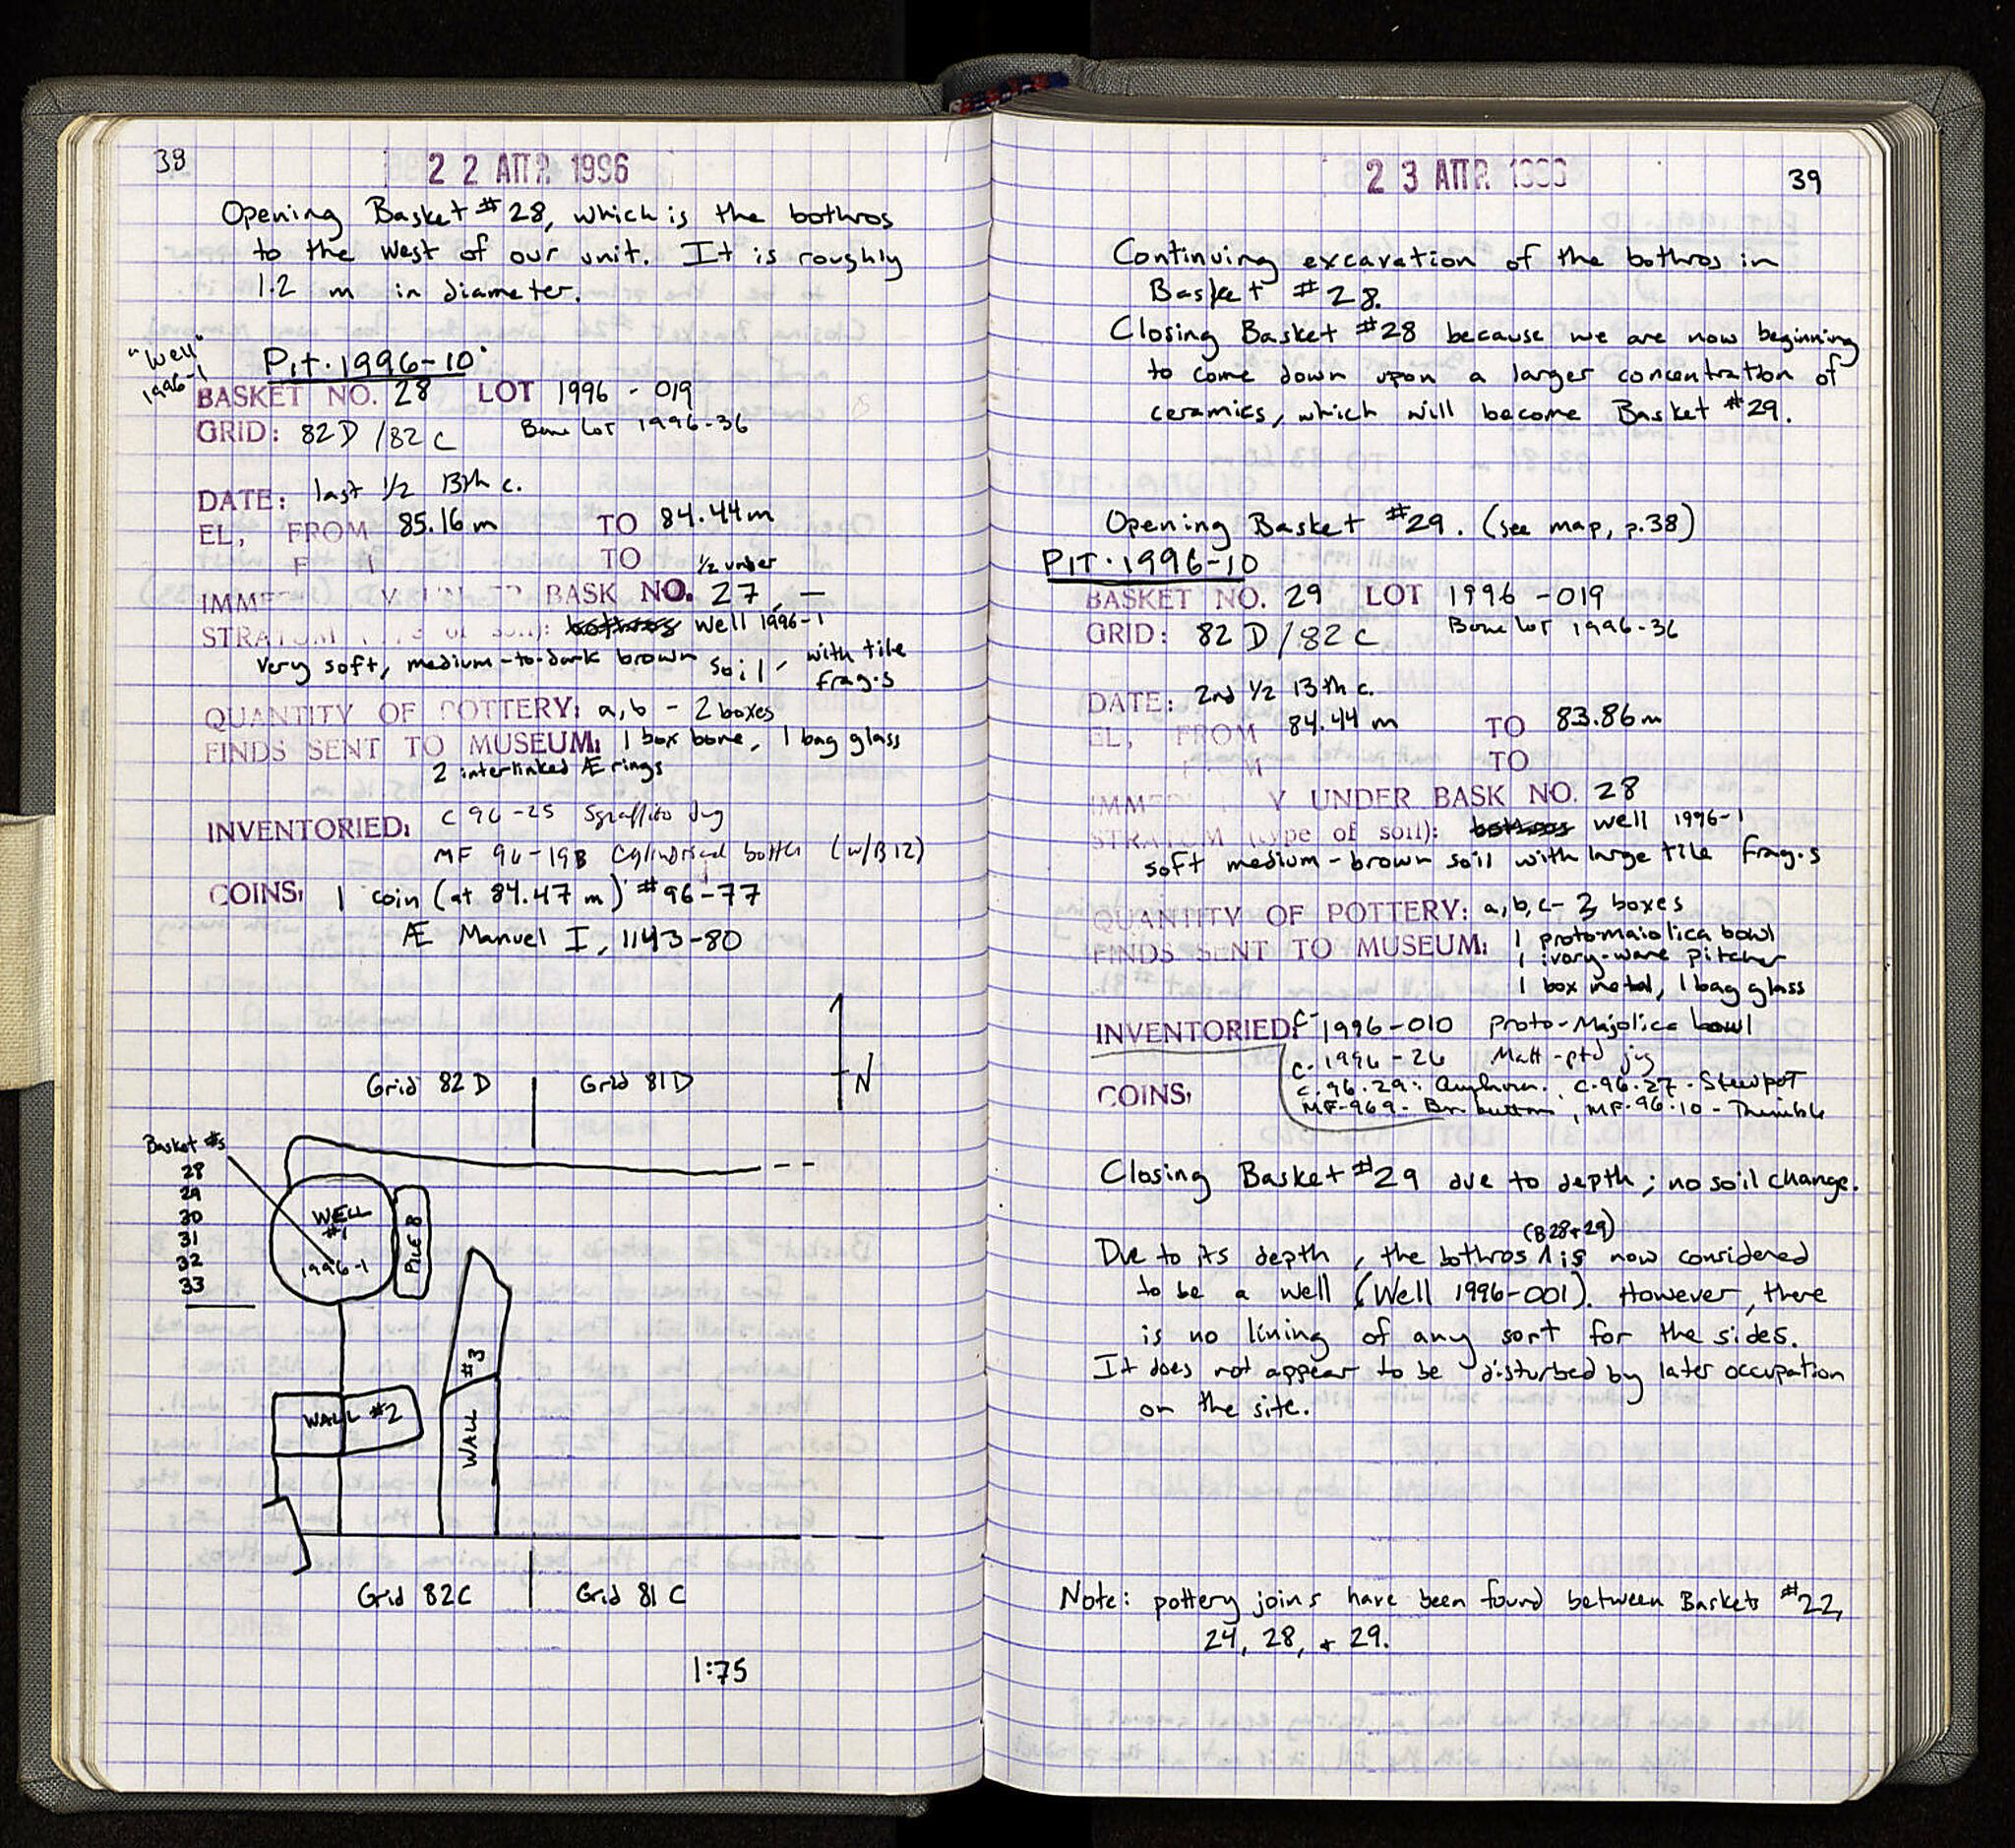 38
22 ΑΠΡ. 1996
Opening Basket #28, which is the bothros
to the west of our unit. It is roughly
1.2 m in diameter.
"Well"
1996-1
Pit. 1996-10
BASKET NO. 28 LOT 1996 - 019
GRID: 82D /82C Bone Lot 1996-36
DATE: last 1/2 13th c.
EL, FROM 85.16m TO 84.44m
F TO
1/2 under
BASK NO. 27, —
STRATUM well 1996-1
very soft, medium-to-dark brown soil, with tile
frag.s
QUANTITY OF POTTERY: a,b - 2 boxes
FINDS SENT TO MUSEUM: 1 box bone, 1 bag glass
2 interlinked Æ rings
INVENTORIED: C 96-25 Sgraffito Jug
MF 96-19B Cylindrical bottle (w/B12)
COINS: 1 coin (at 84.47 m) #96-77
Æ Manuel I, 1143-80
N
Grid 82D Grid 81D
Basket #s
28
29
30
31
32
33
WELL
#1
1996-1
PILE 8
WALL #3
WALL #2
Grid 82C Grid 81C
1:75
23 ΑΠΡ. 1996
39
Continuing excavation of the bothros in
Basket #28.
Closing Basket #28 because we are now beginning
to come down upon a larger concentration of
ceramics, which will become Basket #29.
Opening Basket #29. (see map, p.38)
PIT. 1996-10
BASKET NO. 29 LOT 1996 -019
GRID: 82D/82C Bone Lot 1996-36
DATE: 2nd 1/2 13th c.
EL, FROM 84.44m TO 83.86m
TO
Y UNDER BASK NO. 28
STRATUM (type of soil): well 1996-1
soft medium-brown soil with large tile frag.s
QUANTITY OF POTTERY: a,b,c- 3 boxes
FINDS SENT TO MUSEUM: 1 proto-maiolica bowl
1 ivory-ware pitcher
1 box metal, 1 bag glass
INVENTORIED: C-1996-010 Proto-Majolica bowl
C-1996-26 Matt-ptd jug
C.96.29: Amphora. C.96.27 - Stewpot
COINS: MF-969- Bn button, MF-96-10 - Thimble
Closing Basket #29 due to depth; no soil change.
(B28+29)
Due to its depth, the bothros ∧ is now considered
to be a well (Well 1996-001). However, there
is no lining of any sort for the sides.
It does not appear to be disturbed by later occupation
on the site.
Note: pottery joins have been found between Baskets #22,
24, 28, + 29.